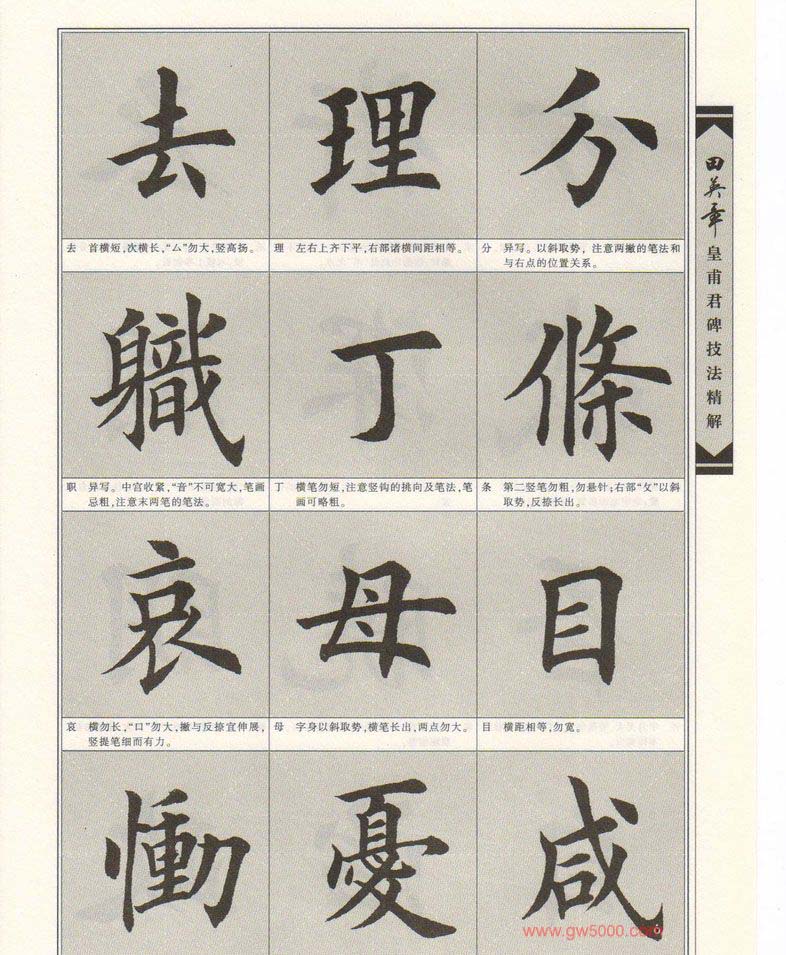 去 理 分
去 首横短，次横长，“厶”勿大，竖高扬。
理 左右上齐下平，右部诸横间距相等。
分 异写。以斜取势，注意两撇的笔法和
与右点的位置关系。
職 丁 條
职 异写。中宫收紧，“音”不可宽大，笔画
忌粗，注意末两笔的笔法。
丁 横笔勿短，注意竖钩的挑向及笔法，笔
画可略粗。
条 第二竖笔勿粗，勿悬针；右部“攵”以斜
取势，反捺长出。
哀 母 目
哀 横勿长，“口”勿大，撇与反捺宜伸展，
竖提笔细而有力。
母 字身以斜取势，横笔长出，两点勿大。
目 横距相等，勿宽。
慟 憂 咸
田英章
皇甫君碑技法精解
www.gw5000.com